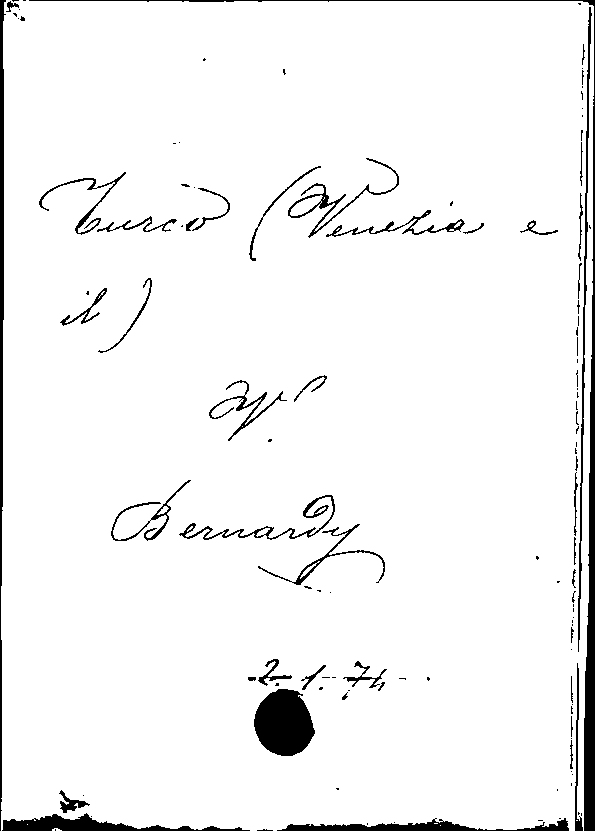 Turco (Venezia e
il)
V.
Bernardy
2. 1. 74